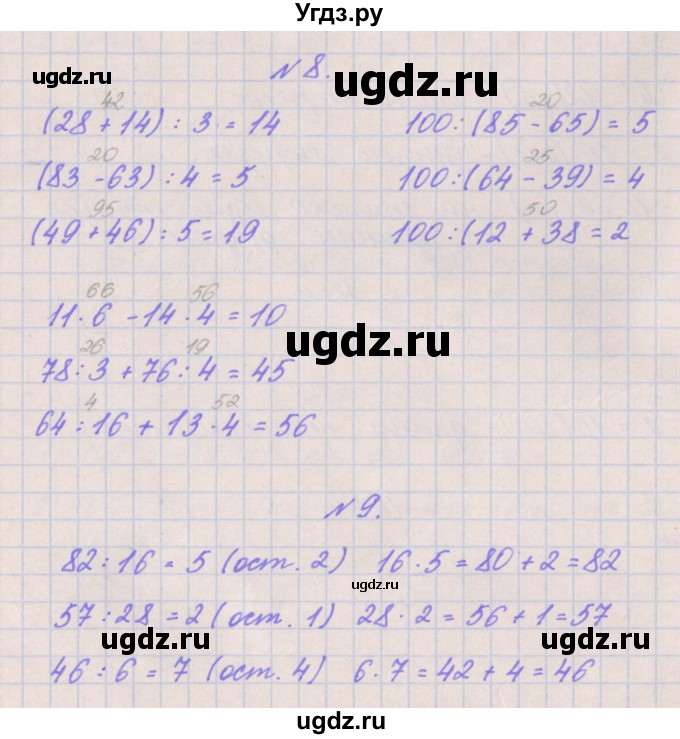 Угдз.ру
№ 8.
ugdz.ru ugdz.ru
42 20
(28 + 14) : 3 = 14 100 : (85 - 65) = 5
20 25
(83 - 63) : 4 = 5 100 : (64 - 39) = 4
95 50
(49 + 46) : 5 = 19 100 : (12 + 38 = 2
66 56
11 · 6 - 14 · 4 = 10
ugdz.ru
26 19
78 : 3 + 76 : 4 = 45
4 52
64 : 16 + 13 · 4 = 56
№ 9.
82 : 16 = 5 (ост. 2) 16 · 5 = 80 + 2 = 82
ugdz.ru
57 : 28 = 2 (ост. 1) 28 · 2 = 56 + 1 = 57
ugdz.ru ugdz.ru
46 : 6 = 7 (ост. 4) 6 · 7 = 42 + 4 = 46
ugdz.ru